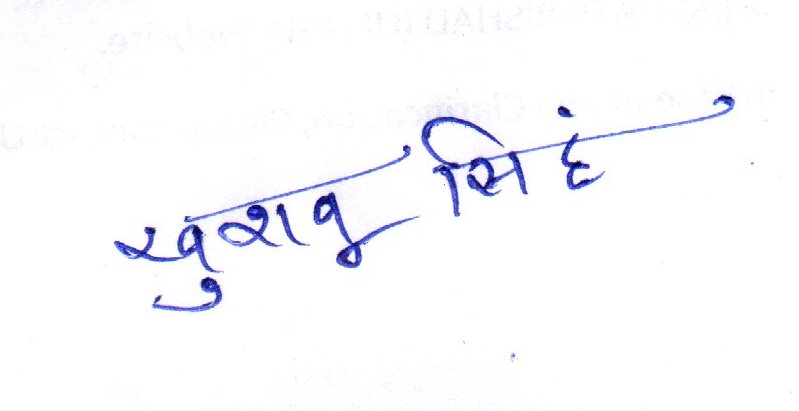 खुशबू सिहं